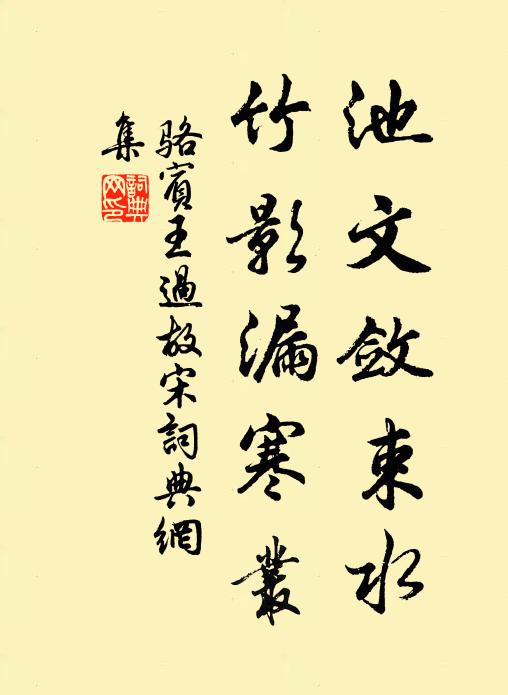 池文斂束水
竹影漏寒叢
駱賓王過故宋詞典網
集
詞典網印